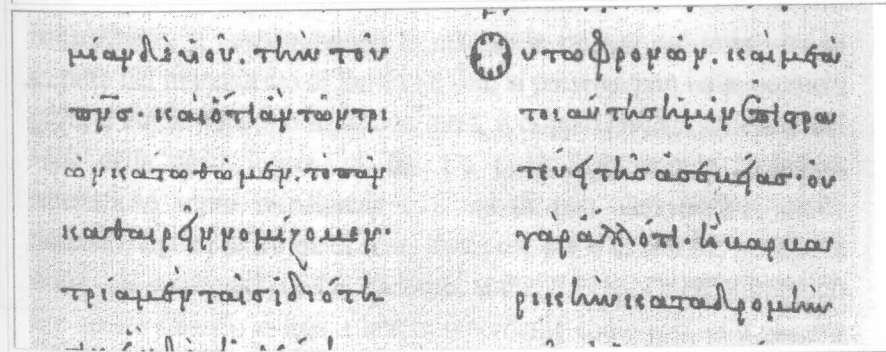 μίαν δὲ υἱοῦ. τὴν τοῦ
πν̅σ· καὶ ὅτι ἂν τῶν τρι
ῶν κάτω θῶμεν. τὸ πᾶν
καθαιρεῖν νομίζομεν·
τρία μὲν ταῖς ἰδιότη
Οὕτω φρονῶν. καὶ μετὰ
τοιαύτης ἡμῖν ἐπιστρα
τεύει τῆς ἀσεβείας· οὐ
γὰρ ἄλλό τι· ἢ βαρβα
ρικὴν καταδρομὴν